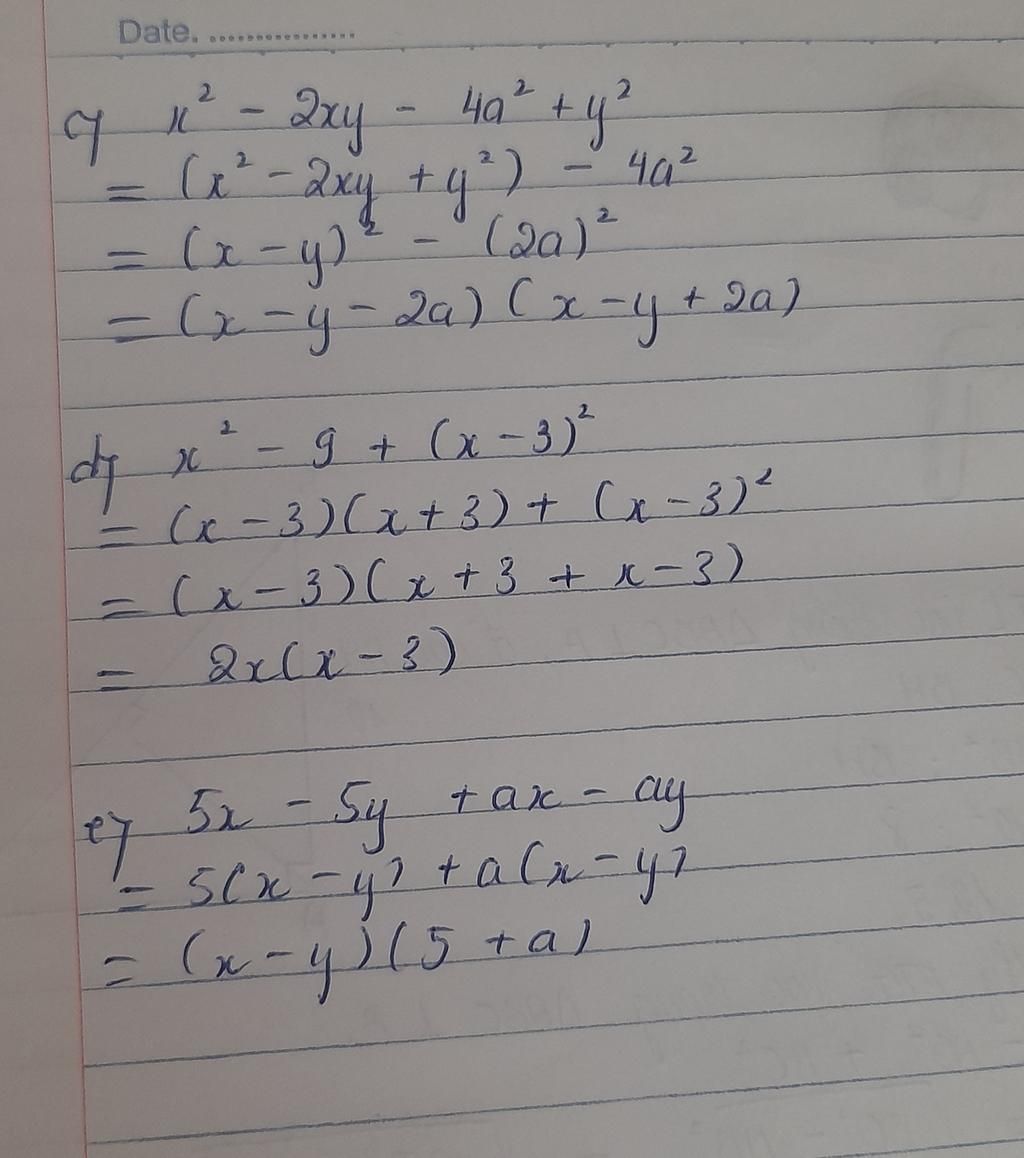 Date. ................
c) x² - 2xy - 4a² + y²
= (x² - 2xy + y²) - 4a²
= (x - y)² - (2a)²
= (x - y - 2a) (x - y + 2a)
d) x² - 9 + (x - 3)²
= (x - 3)(x + 3) + (x - 3)²
= (x - 3)(x + 3 + x - 3)
= 2x(x - 3)
e) 5x - 5y + ax - ay
= 5(x - y) + a(x - y)
= (x - y)(5 + a)